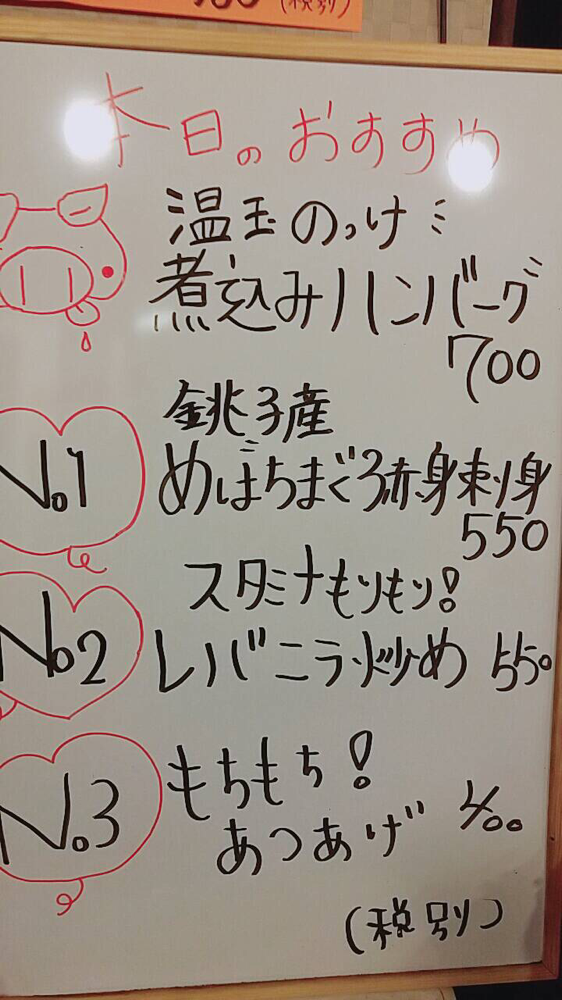 (税別)
本日のおすすめ
温玉のっけ
煮込みハンバーグ
700
No.1
銚子産
めばちまぐろ赤身刺身
550
No.2
スタミナもりもり!
レバニラ炒め 550
No.3
もちもち!
あつあげ 400
(税別)